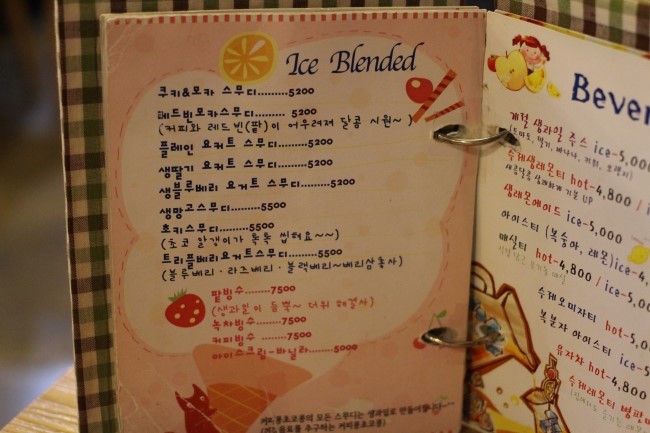 Ice Blended
쿠키&모카 스무디.........5200
레드빈모카스무디......... 5200
(커피와 레드빈(팥)이 어우려져 달콤 시원~ )
플레인 요거트 스무디.......5200
생딸기 요거트 스무디.......5200
생블루베리 요거트 스무디.....5200
생망고스무디.........5500
초키스무디.........5500
(초코 알갱이가 톡톡 씹혀요~~)
트리플베리요거트스무디.......5500
(블루베리·라즈베리·블랙베리~베리삼총사)
팥빙수.......7500
(생과일이 듬뿍~ 더위 해결사)
녹차빙수.......7500
커피빙수 .......7500
아이스크림-바닐라.........5000
커피콩초코콩의 모든 스무디는 생과일로 만들어집니다
Bever
계절 생과일 주스 ice-5,000
(토마토, 딸기, 바나나, 키위, 오렌지)
수제생레몬티 hot-4,800 /
새콤달콤 상쾌하게 기분 UP
생레몬에이드 ice-5,000
아이스티 (복숭아, 레몬)ice-4,
매실티 hot-4,800 / ice-5,
수제오미자티 hot-5,
복분자 아이스티 ice
유자차 hot-4,80
수제레몬티